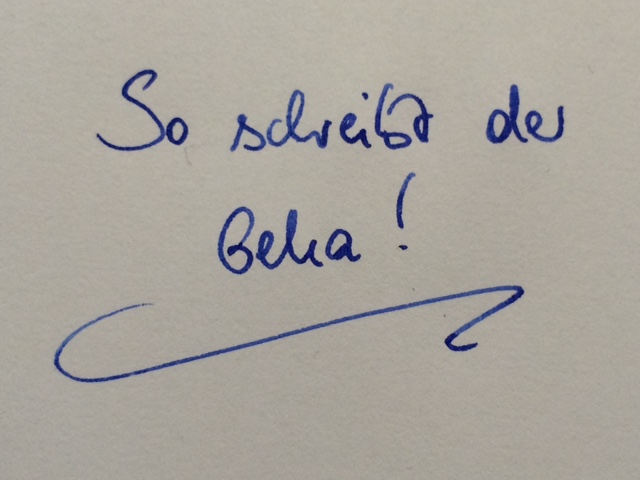 So schreibt der
Beka!